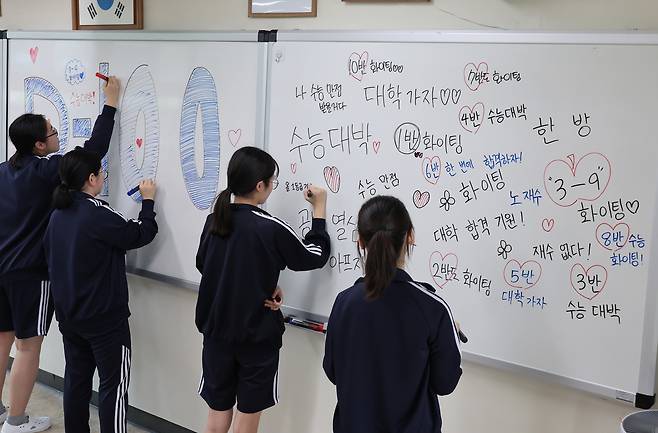 D-100
수능대박
나 수능 만점
받을거다
10반 화이팅♡♡
대학가자♡♡
7반도 화이팅
4반 수능대박
수능대박
1반 화이팅
한 방
6반 한 번에 합격하자!
"3-9"
화이팅♡
수능 만점
화이팅
노 재수
대학 합격 기원!
재수 없다!
8반 수능
화이팅!
2반도 화이팅
5반
대학가자
수능 대박